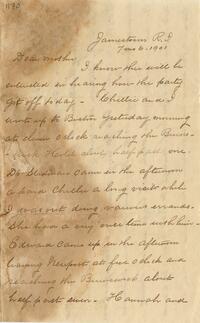 Jamestown R.I
Nov 6. 1901
Dear mother
I know you will be
interested in hearing how the party
got off today. Chellie and I
went up to Boston yesterday morning
at eleven o'clock reaching the Bruns-
wick Hotel about half past one.
Dr. came in the afternoon
and Chellie a long visit while
I was out doing various errands.
She have a very nice time with him -
Edward came up in the afternoon
leaving Newport at five o'clock and
reaching the Brunswick about
half past seven - Hannah and